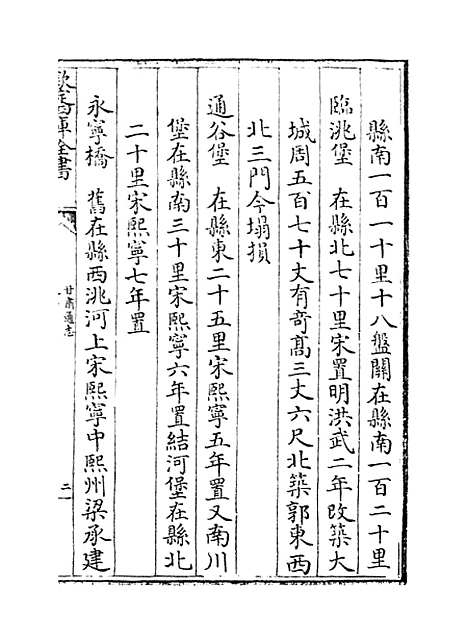 縣南一百一十里十八盤關在縣南一百二十里
臨洮堡　在縣北七十里宋置明洪武二年改築大
城周五百七十丈有竒髙三丈六尺北築郭東西
北三門今塌損
通谷堡　在縣東二十五里宋熙寧五年置又南川
堡在縣南三十里宋熙寧六年置結河堡在縣北
二十里宋熙寧七年置
永寧橋　舊在縣西洮河上宋熙寧中熙州梁承建
欽定四庫全書
甘肅通志